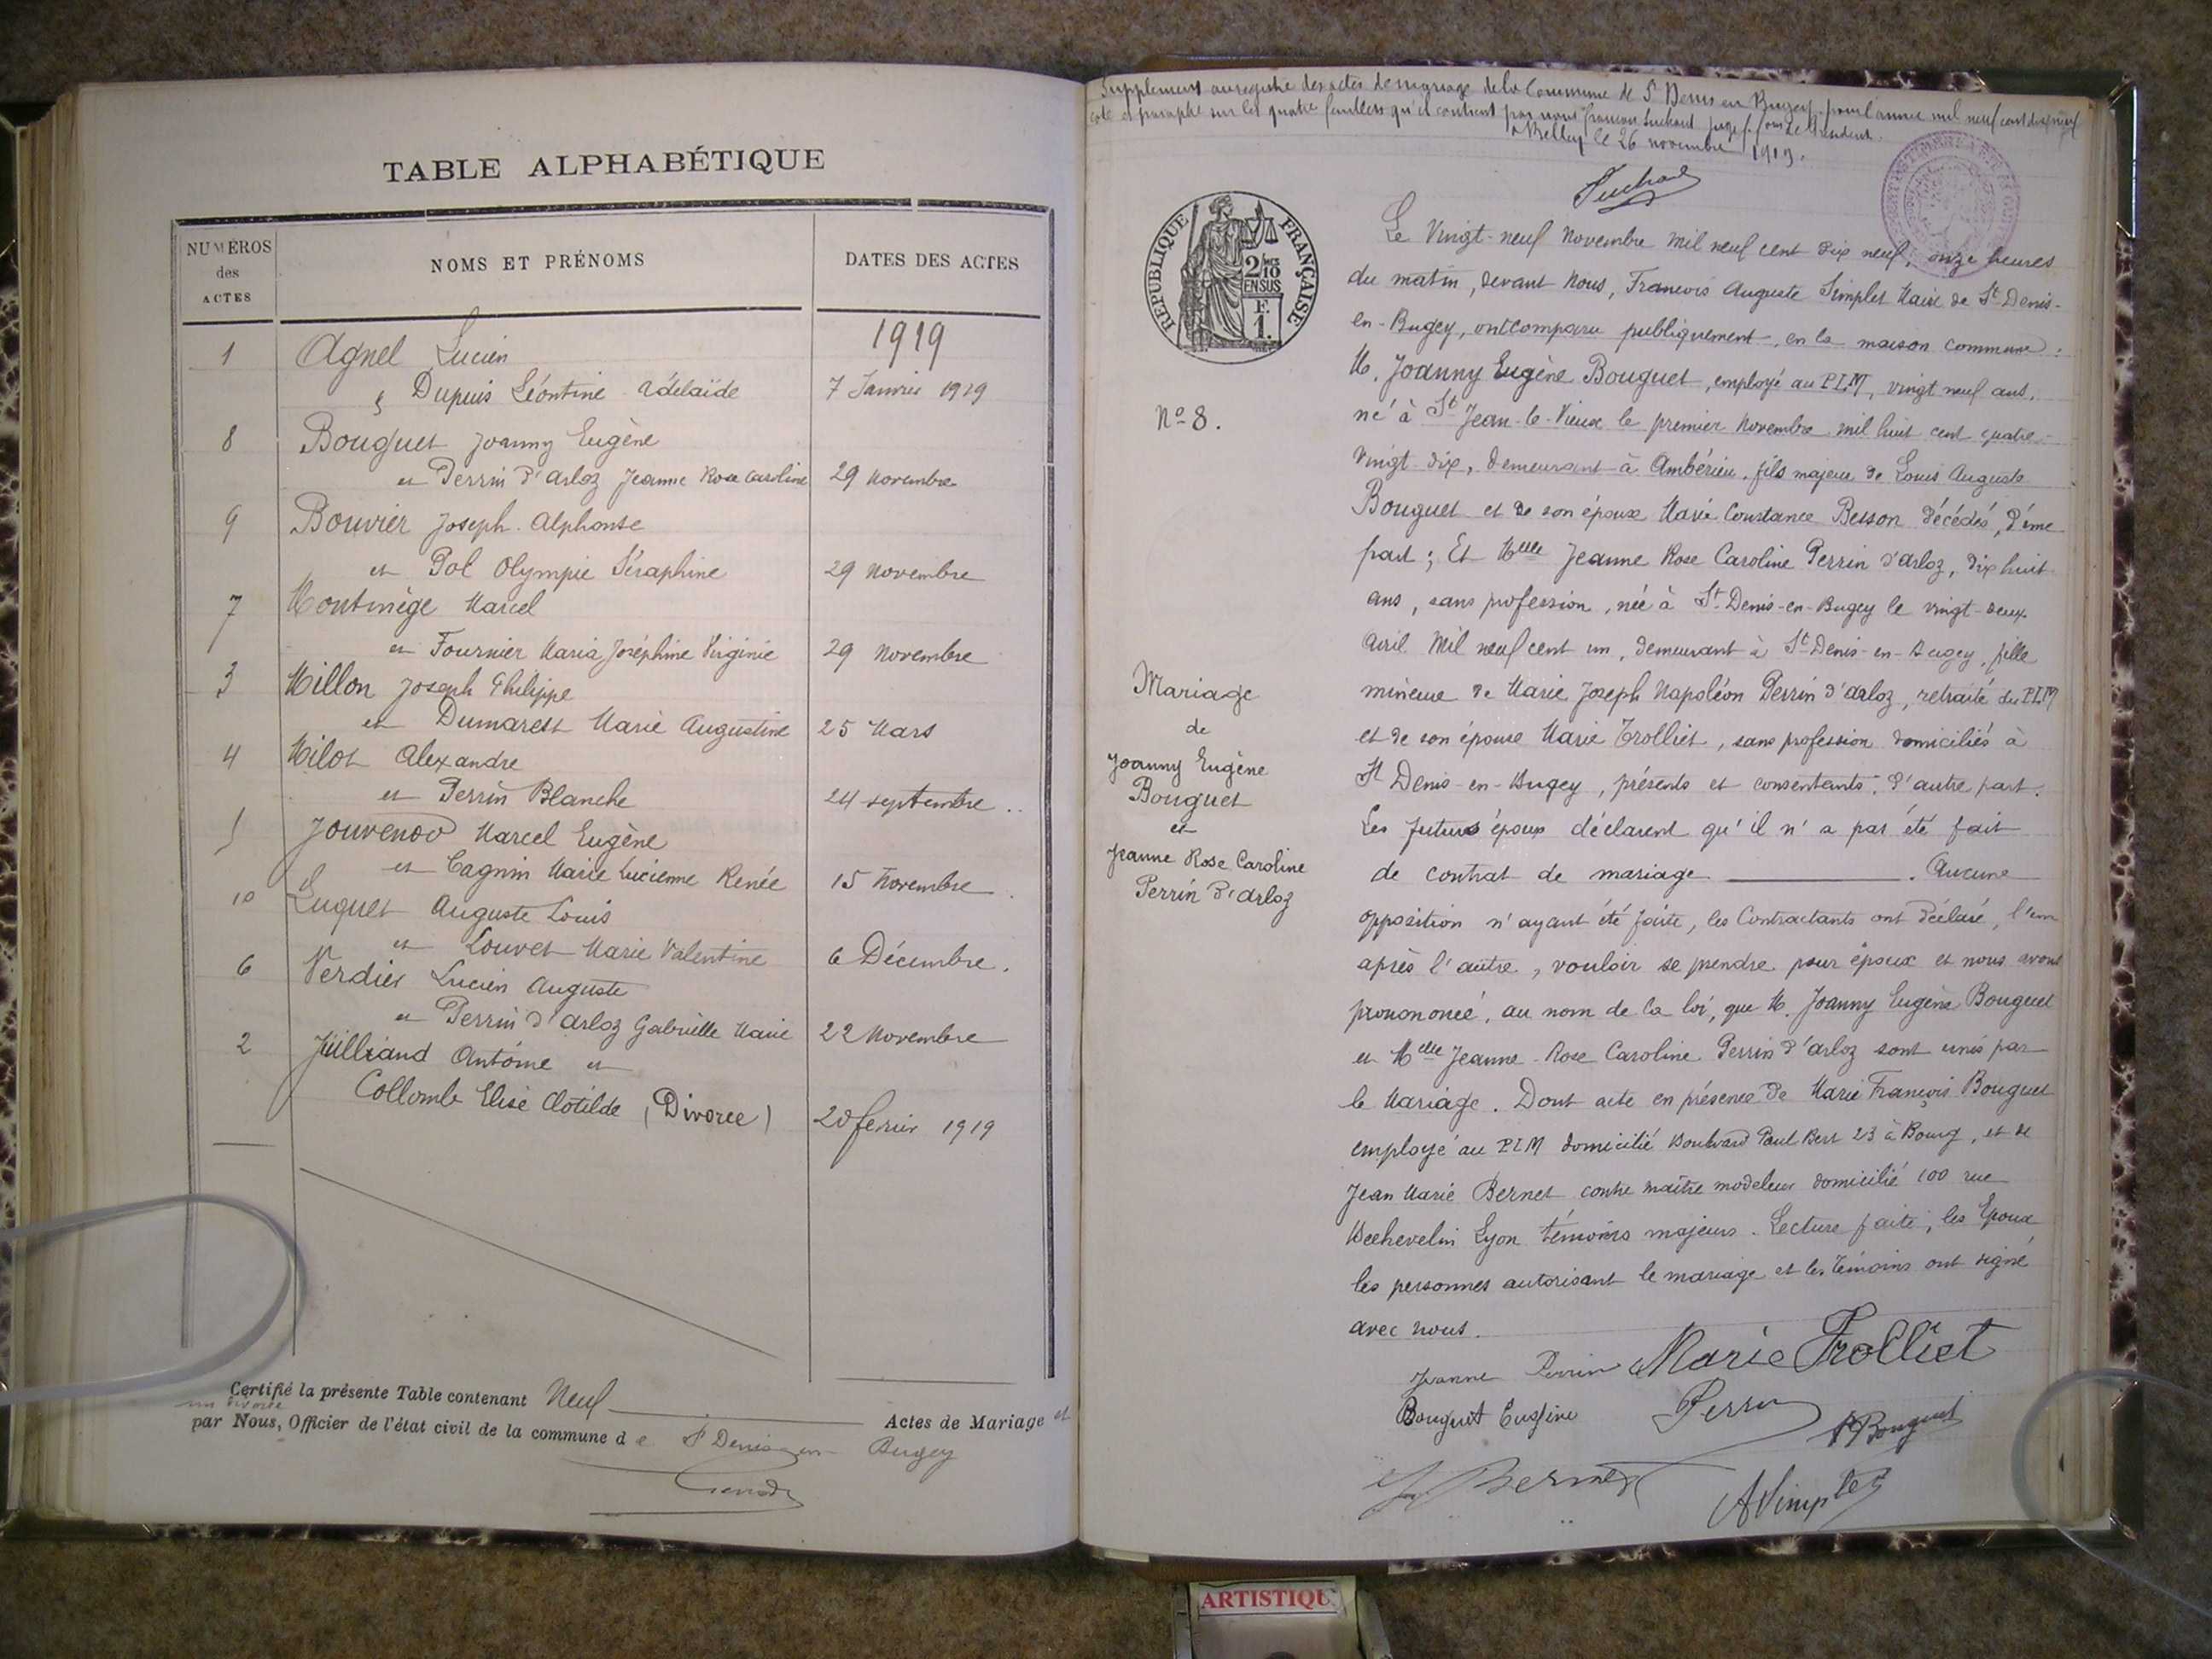 TABLE ALPHABÉTIQUE
NUMÉROS
des
ACTES
NOMS ET PRÉNOMS
DATES DES ACTES
1919
1 Agnel Lucien
& Dupuis Léontine Adélaïde 7 Janvier 1919
8 Bouguet Joanny Eugène
et Perrin d'Arloz Jeanne Rose Caroline 29 Novembre
9 Bouvier Joseph Alphonse
et Pol Olympie Séraphine 29 Novembre
7 Montmège Marcel
et Fournier Maria Joséphine Virginie 29 Novembre
3 Millon Joseph Philippe
et Dumarest Marie Augustine 25 Mars
4 Milot Alexandre
et Perrin Blanche 24 septembre
5 Jouvenod Marcel Eugène
et Cagnin Marie Lucienne Renée 15 Novembre
10 Luquet Auguste Louis
et Louvet Marie Valentine 6 Décembre.
6 Verdier Lucien Auguste
et Perrin d'Arloz Gabrielle Marie 22 Novembre
2 Juilliand Antoine et
Collomb Elise Clotilde (Divorce) 20 février 1919
Certifié la présente Table contenant Neuf Actes de Mariage et
un divorce
par Nous, Officier de l'état civil de la commune de St Denis en Bugey
Supplement au registre des actes de mariage de la Commune de St Denis en Bugey pour l'année mil neuf cent dix neuf
coté et paraphé sur les quatre feuillets qu'il contient par nous juge
Belley le 26 novembre 1919.
RÉPUBLIQUE FRANÇAISE
2/10
EN SUS
F.
1.
No 8.
Mariage
de
Joanny Eugène
Bouguet
et
Jeanne Rose Caroline
Perrin d'Arloz
Le Vingt-neuf Novembre mil neuf cent dix neuf, onze heures
du matin, devant Nous, François Auguste Simplet Maire de St Denis-
en-Bugey, ont comparu publiquement en la maison commune :
M. Joanny Eugène Bouguet, employé au PLM, vingt neuf ans,
né à St Jean-le-Vieux le premier Novembre mil huit cent quatre-
vingt-dix, demeurant à Ambérieu, fils majeur de Louis Auguste
Bouguet et de son épouse Marie Constance Besson décédés, d'une
part ; Et Melle Jeanne Rose Caroline Perrin d'Arloz, dix huit
ans, sans profession, née à St Denis-en-Bugey le vingt-deux
Avril Mil neuf cent un, demeurant à St Denis-en-Bugey, fille
mineure de Marie Joseph Napoléon Perrin d'Arloz, retraité du PLM
et de son épouse Marie Trolliet, sans profession domiciliés à
St Denis-en-Bugey, présents et consentants, d'autre part.
Les futurs époux déclarent qu'il n'a pas été fait
de contrat de mariage. Aucune
opposition n'ayant été faite, les Contractants ont déclaré, l'un
après l'autre, vouloir se prendre pour époux et nous avons
prononcé, au nom de la loi, que M. Joanny Eugène Bouguet
et Melle Jeanne Rose Caroline Perrin d'Arloz sont unis par
le Mariage. Dont acte en présence de Marie François Bouguet
employé au PLM domicilié Boulevard Paul Bert 23 à Bourg, et de
Jean Marie Bernet contre maître modeleur domicilié 100 rue
Béchevelin Lyon témoins majeurs. Lecture faite, les Epoux
les personnes autorisant le mariage et les témoins ont signé
avec nous.
Jeanne Perrin Marie Trolliet
Bouguet Eugène Perrin Bouguet
J Bernet A Simplet
ARTISTIQU